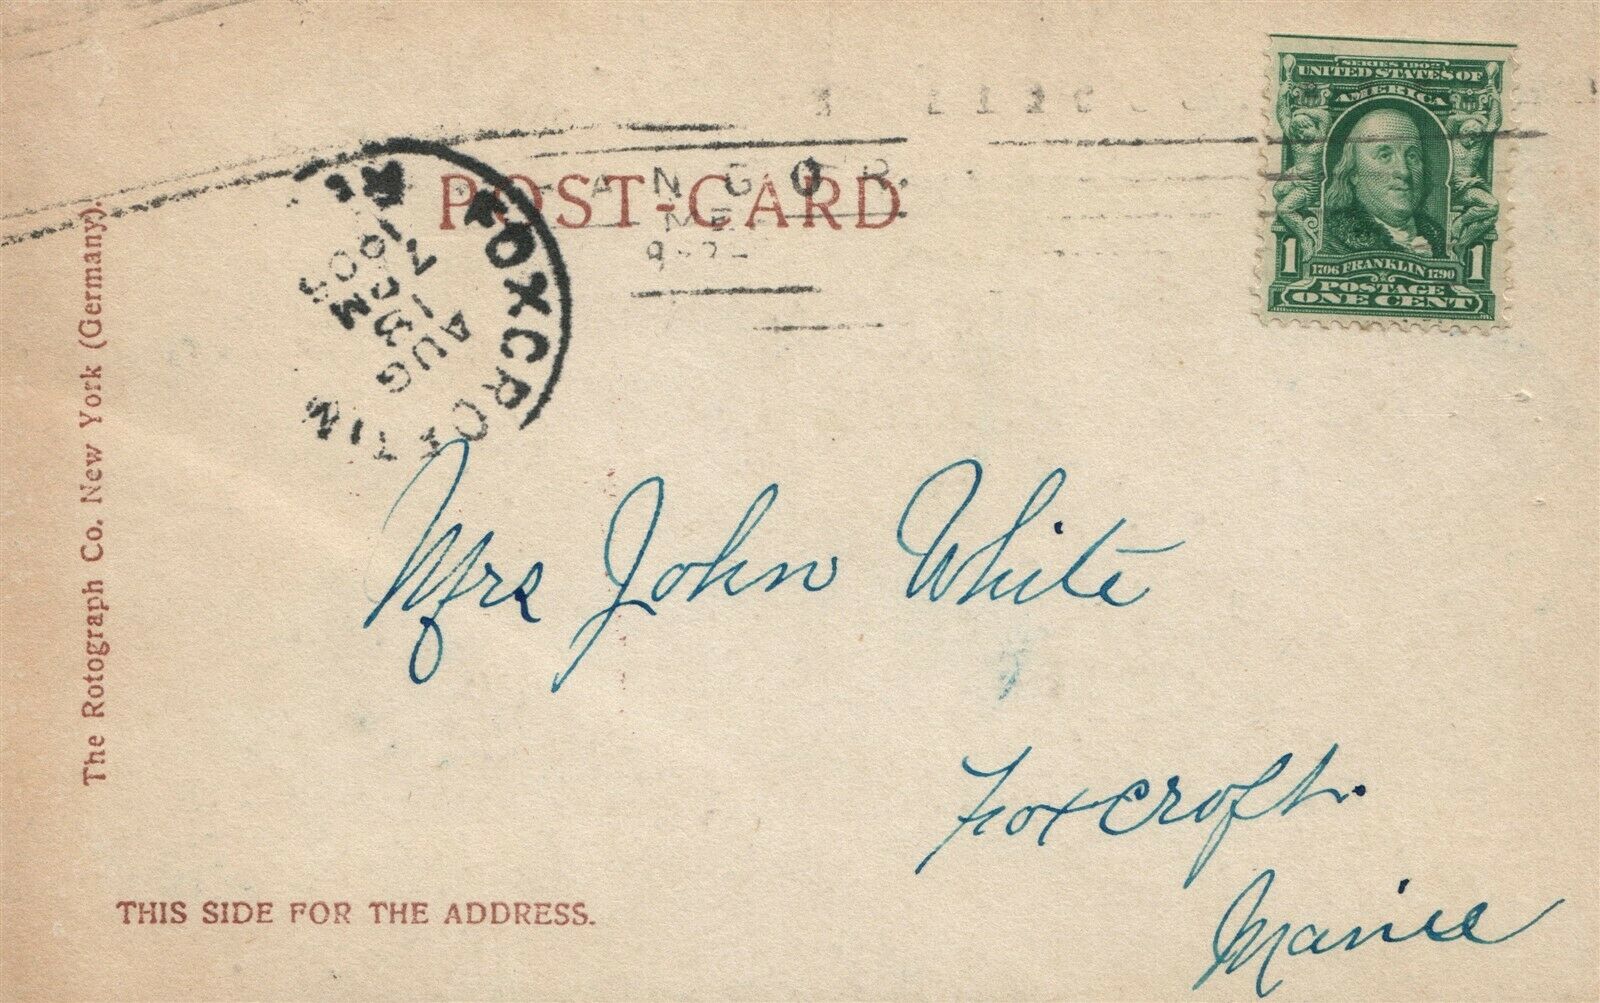 SERIES 1902
UNITED STATES OF
AMERICA
1 1706 FRANKLIN 1790 1
POSTAGE
ONE CENT
ANGOR.
ME
POST-CARD
FOXCROFT
AUG
7
Mrs John White
Foxcroft.
Manie
The Rotograph Co. New York (Germany).
THIS SIDE FOR THE ADDRESS.